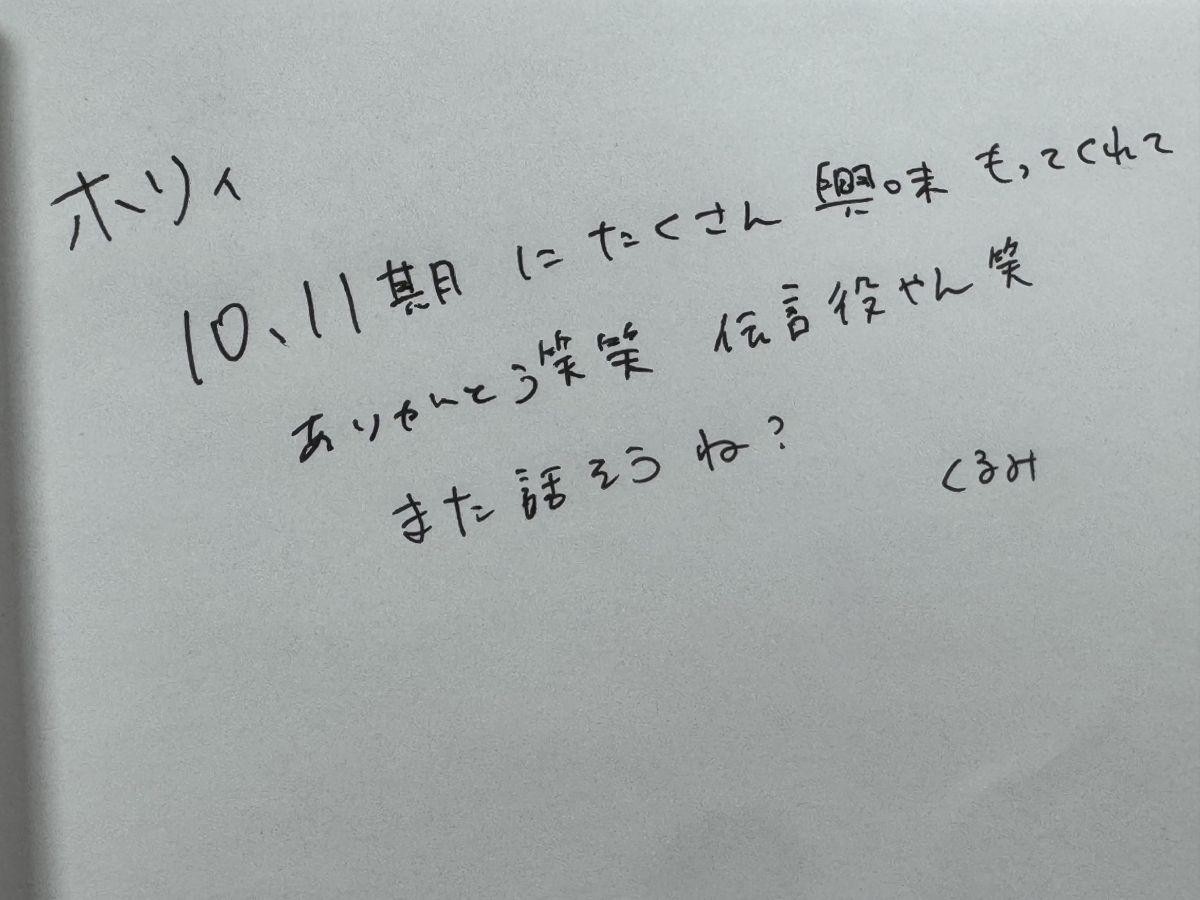 ホリィ
10、11期にたくさん興味もってくれて
ありがとう笑笑 伝言役やん笑
また話そうね?
くるみ